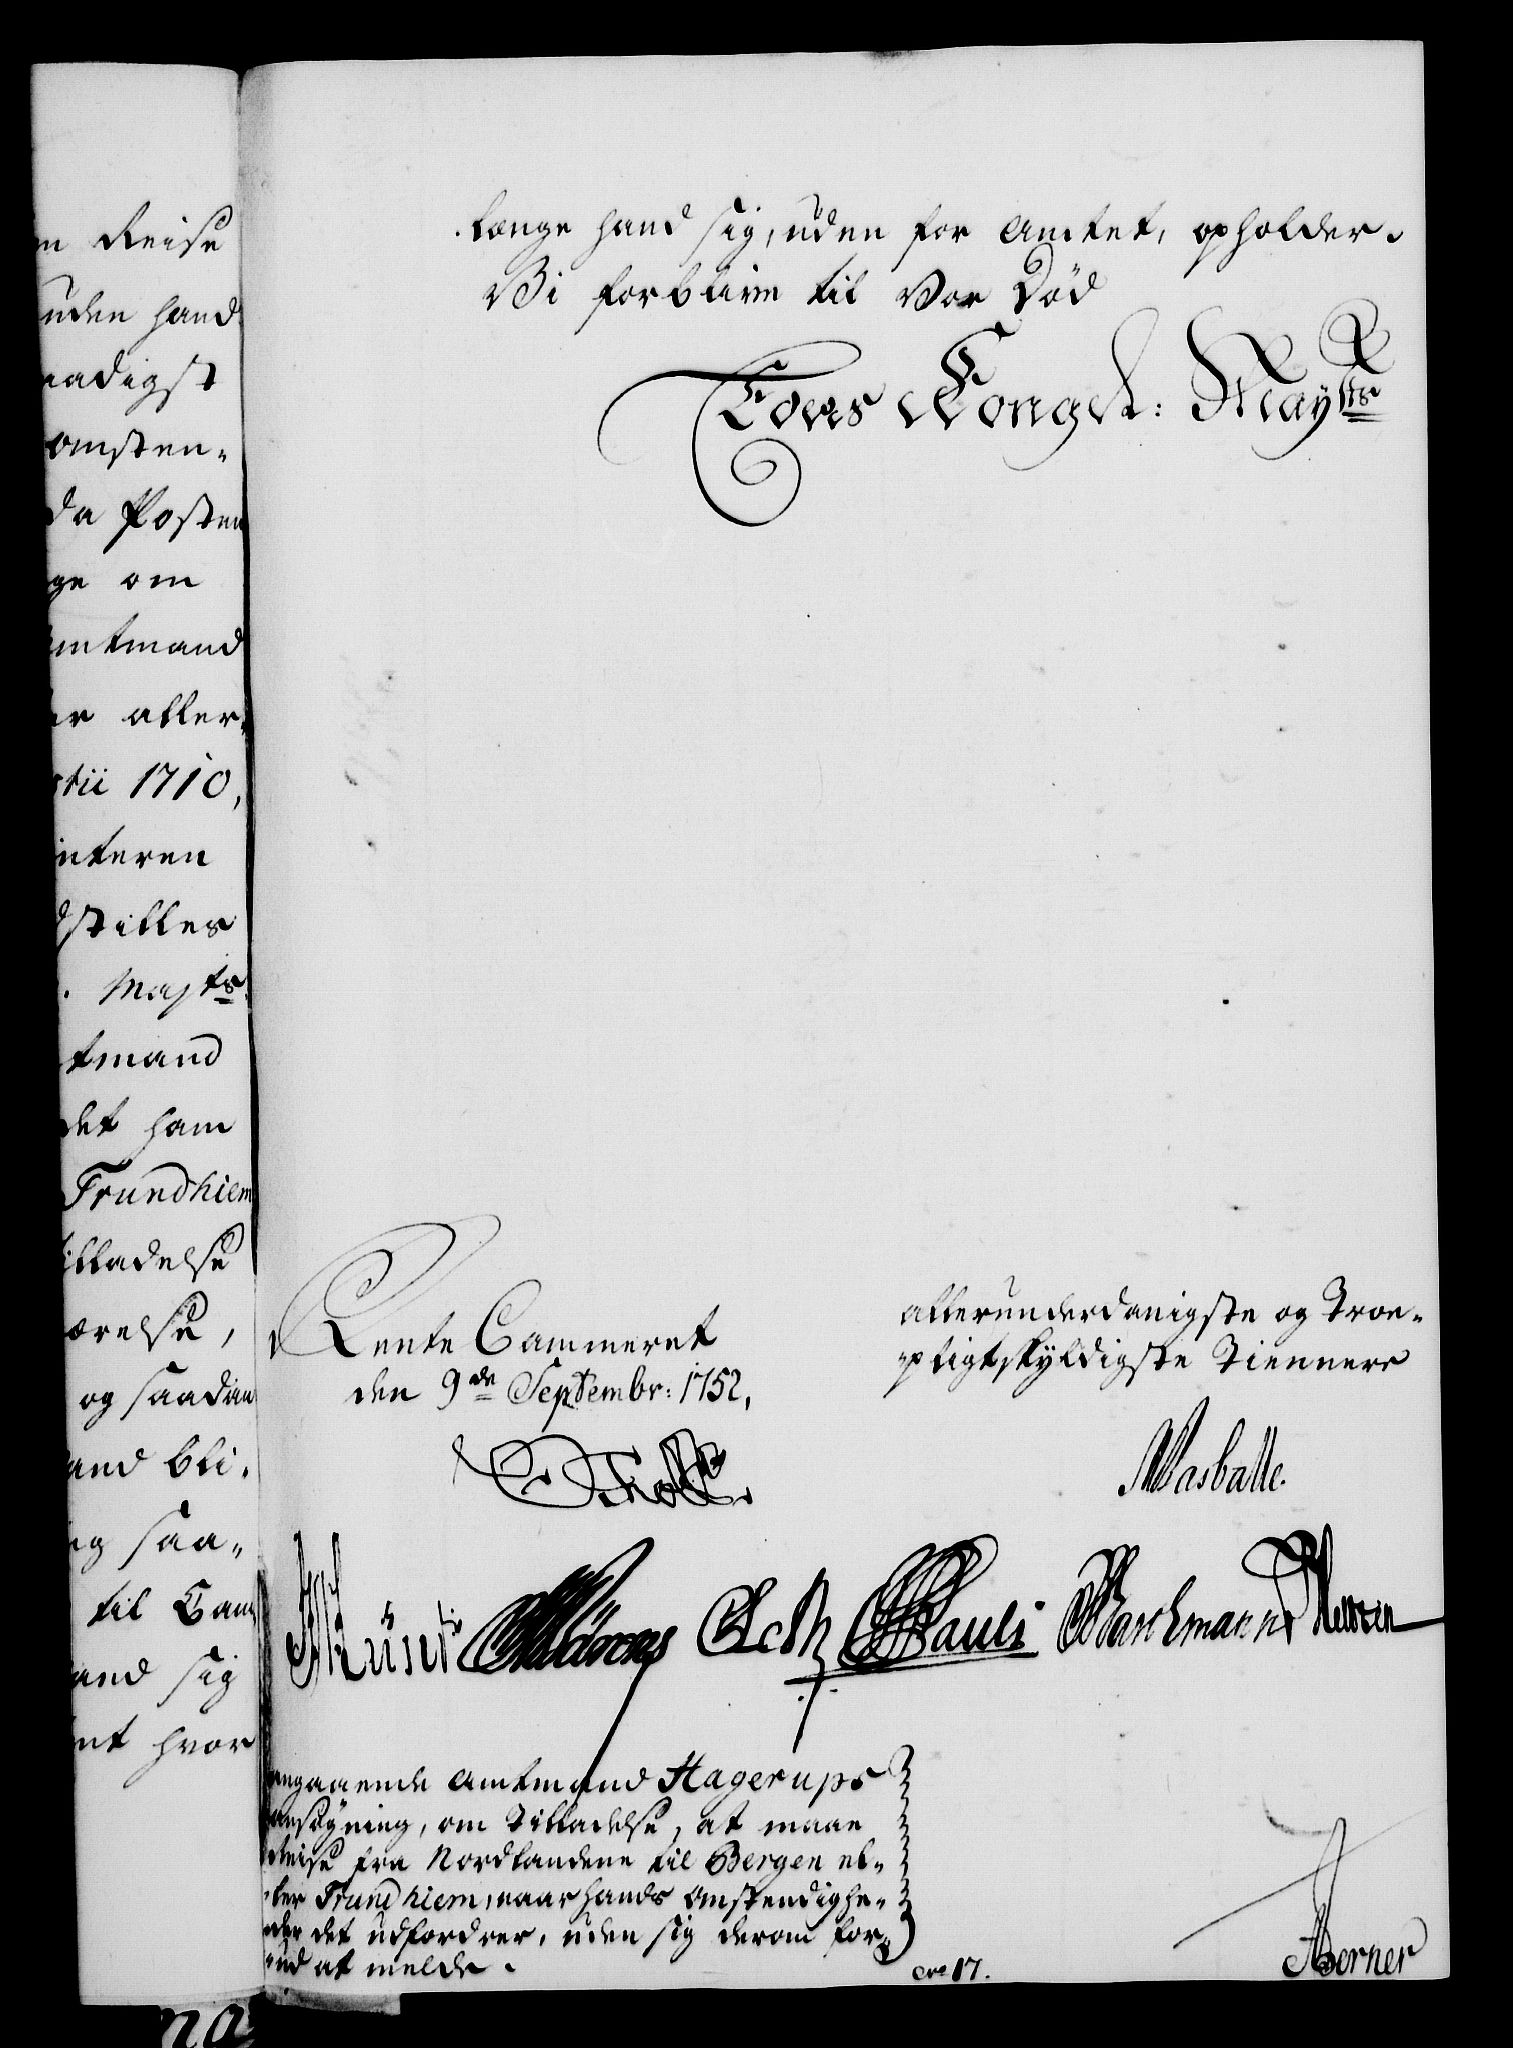 n Reise
uden hand
aadigst
omsten-
da Posten
ge om
mtmand
er aller-
stii 1710,
interen
dstilles
. Mayts
tmand
det ham
Trundhiem
illadelse
ærelse,
og saadan
and bli-
ng saa-
til
and sig
nt hvor
længe hand sig, uden for Amtet, opholder.
Vi forblive til Vor Död
Eders Kongel: Mayts
Rente Cammeret
den 9de Septembr: 1752,
allerunderdanigste og Troe-
pligtskyldigste Tiennere
Holst.
Wasballe.
Pauli
Marckmann
angaaende Amtmand Hagerups
ansøgning, om Tilladelse, at maae
Reise fra Nordlandene til Bergen el-
ler Trundhiem, naar hands Omstendighe-
der det udfordrer, uden sig derom for-
ud at melde.
No 17.
Berner